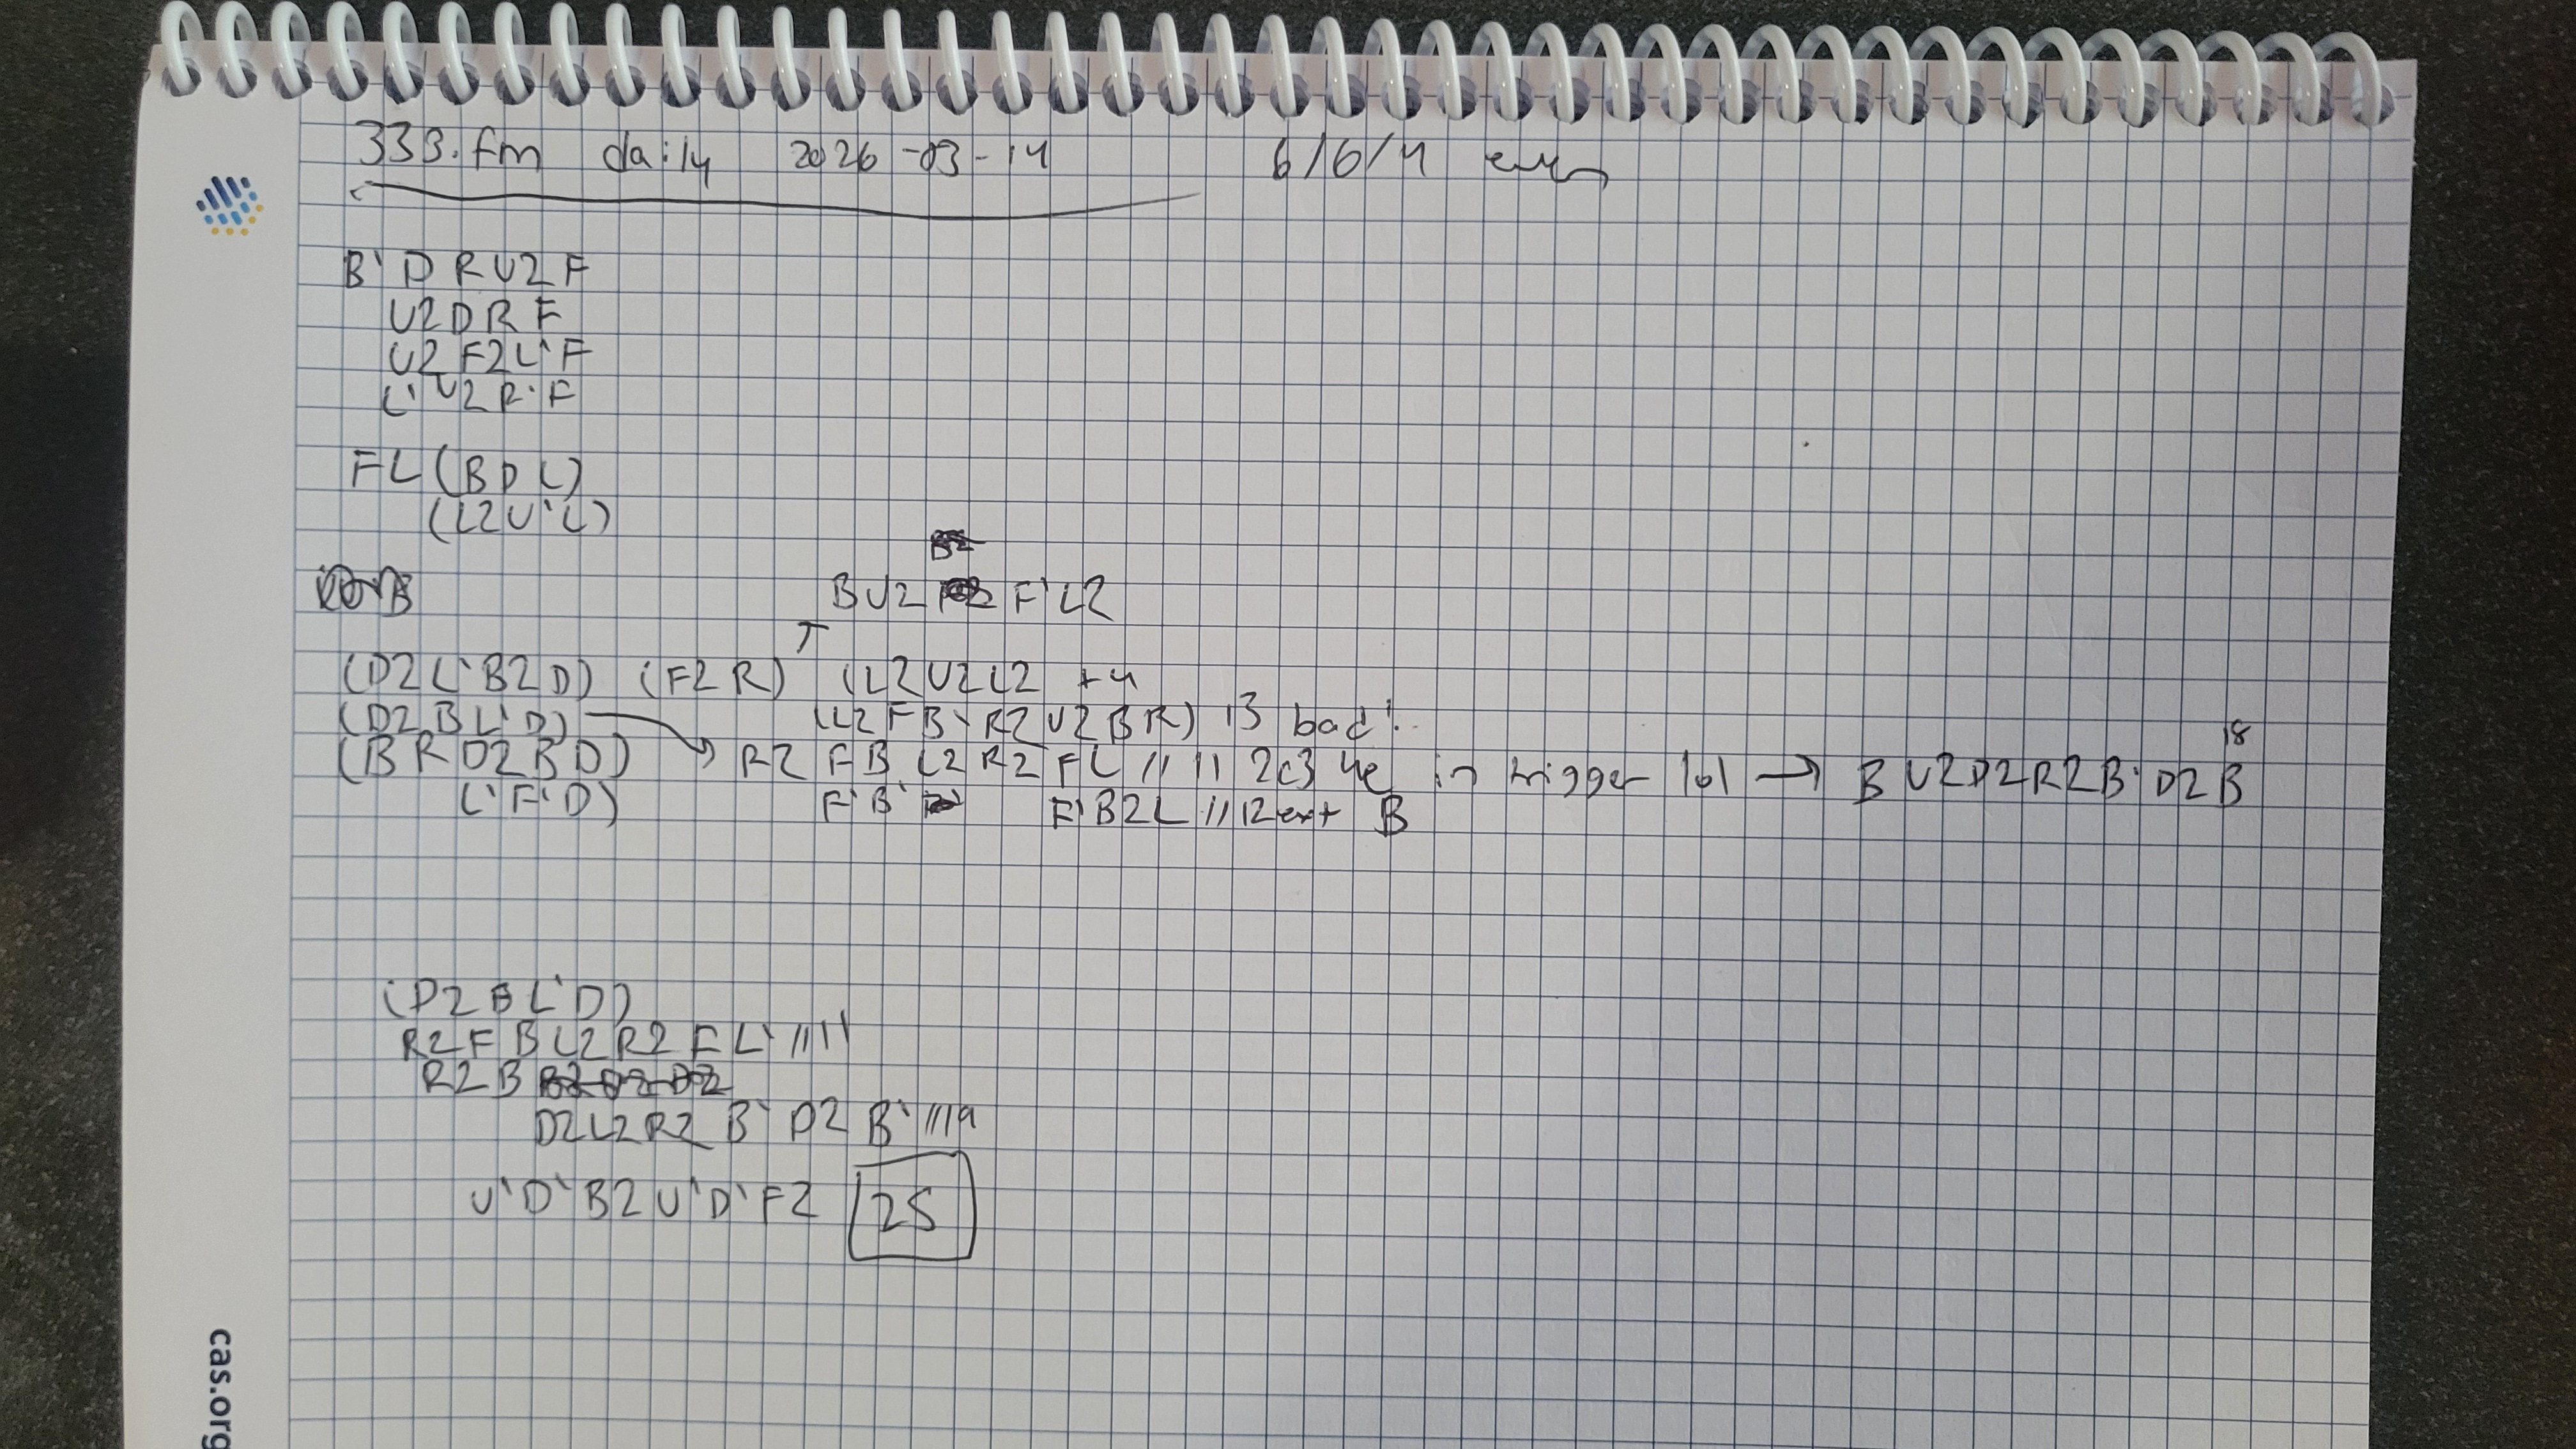 333.fm daily 2026-03-14 6/6/4
B' D R U2 F
U2 D R F
U2 F2 L' F
L' U2 R' F
F L (B D L)
(L2 U' L)
B U2 F' L2
(D2 L' B2 D) (F2 R) (L2 U2 L2 +4
(D2 B L' D) (L2 F B' R2 U2 B R) 13 bad!
(B R D2 B D) R2 F B L2 R2 F L // 11 2c3 4e in trigger lol → B U2 D2 R2 B' D2 B 18
(L' F' D) F' B' F' B2 L // 12 ext B
(D2 B L' D)
R2 F B L2 R2 F L' // 11
R2 B
D2 L2 R2 B' D2 B' // 19
U' D' B2 U' D' F2 25
cas.org